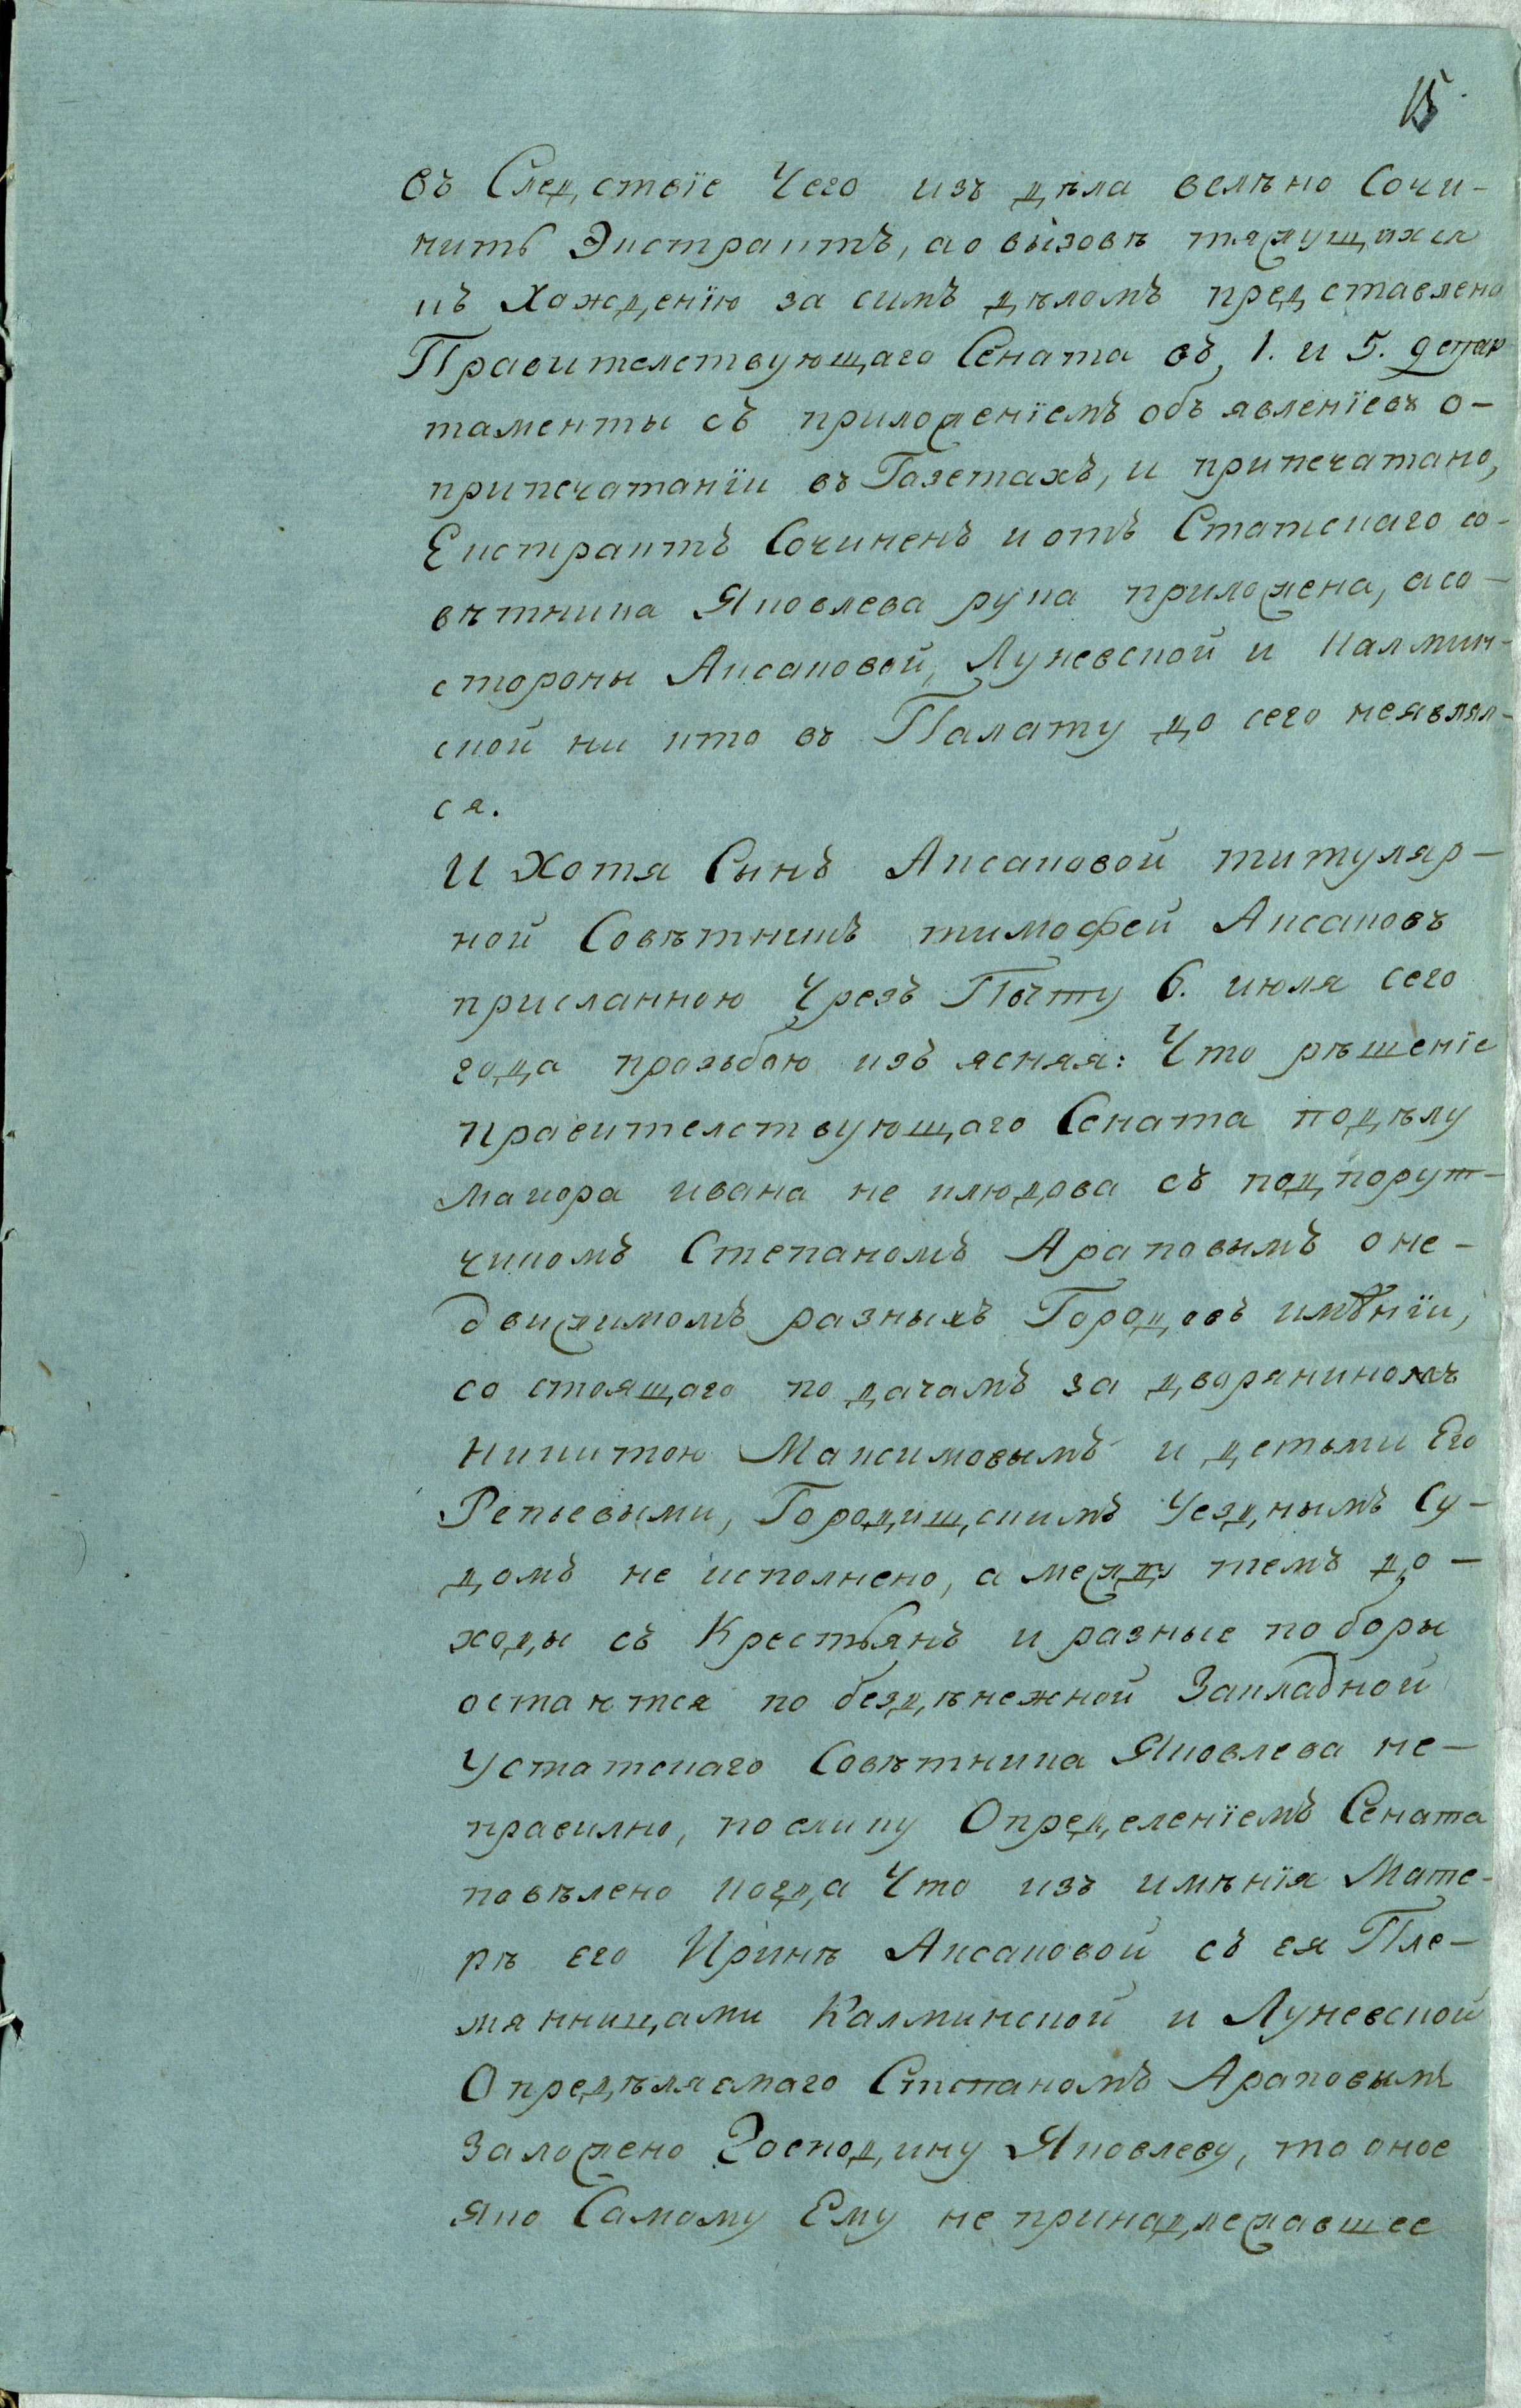 15
въ Следствїе Чего изъ дѣла велѣно Сочи-
нить Экстрактъ, а о вызовѣ тяжущихся
къ Хожденїю за симъ дѣломъ представлено
Правителствующаго Сената въ 1. и 5. депар
таменты съ приложенїемъ объявленїевъ о-
припечатанїи въ Газетахъ, и припечатано,
Екстрактъ Сочиненъ и отъ Статскаго со-
вѣтника Яковлева рука приложена, а со-
стороны Аксаковой, Луневской и Калмин-
ской ни кто въ Палату до сего неявлял-
ся.
И Хотя Сынъ Аксаковой титуляр-
ной Совѣтникъ тимофей Аксаковъ
присланною Чрезъ Почту 6. июля сего
года прозьбою изъясняя: Что рѣшенїе
правителствующаго Сената подѣлу
маиора ивана не клюдова съ подпорут-
чикомъ Степаномъ Араповымъ оне-
движимомъ разныхъ Городовъ имѣнїи,
состоящаго по дачамъ за дворяниномъ
никитою Максимовымъ и детьми Его
Репьевыми, Городищскимъ Уезднымъ Су-
домъ не исполнено, а между темъ до-
ходы съ Крестьянъ и разные поборы
остаются по бездѣнежной Закладной
Устатскаго Совѣтника Яковлева не-
правилно, поелику Определенїемъ Сената
повѣлено когда Что изъ имѣнїя Мате-
рѣ его Иринѣ Аксаковой съ ея Пле-
мянницами Калминской и Луневской
Опредѣляемаго Степаномъ Араповымъ
Заложено Господину Яковлеву, то оное
яко Самому Ему не принадлежавшее